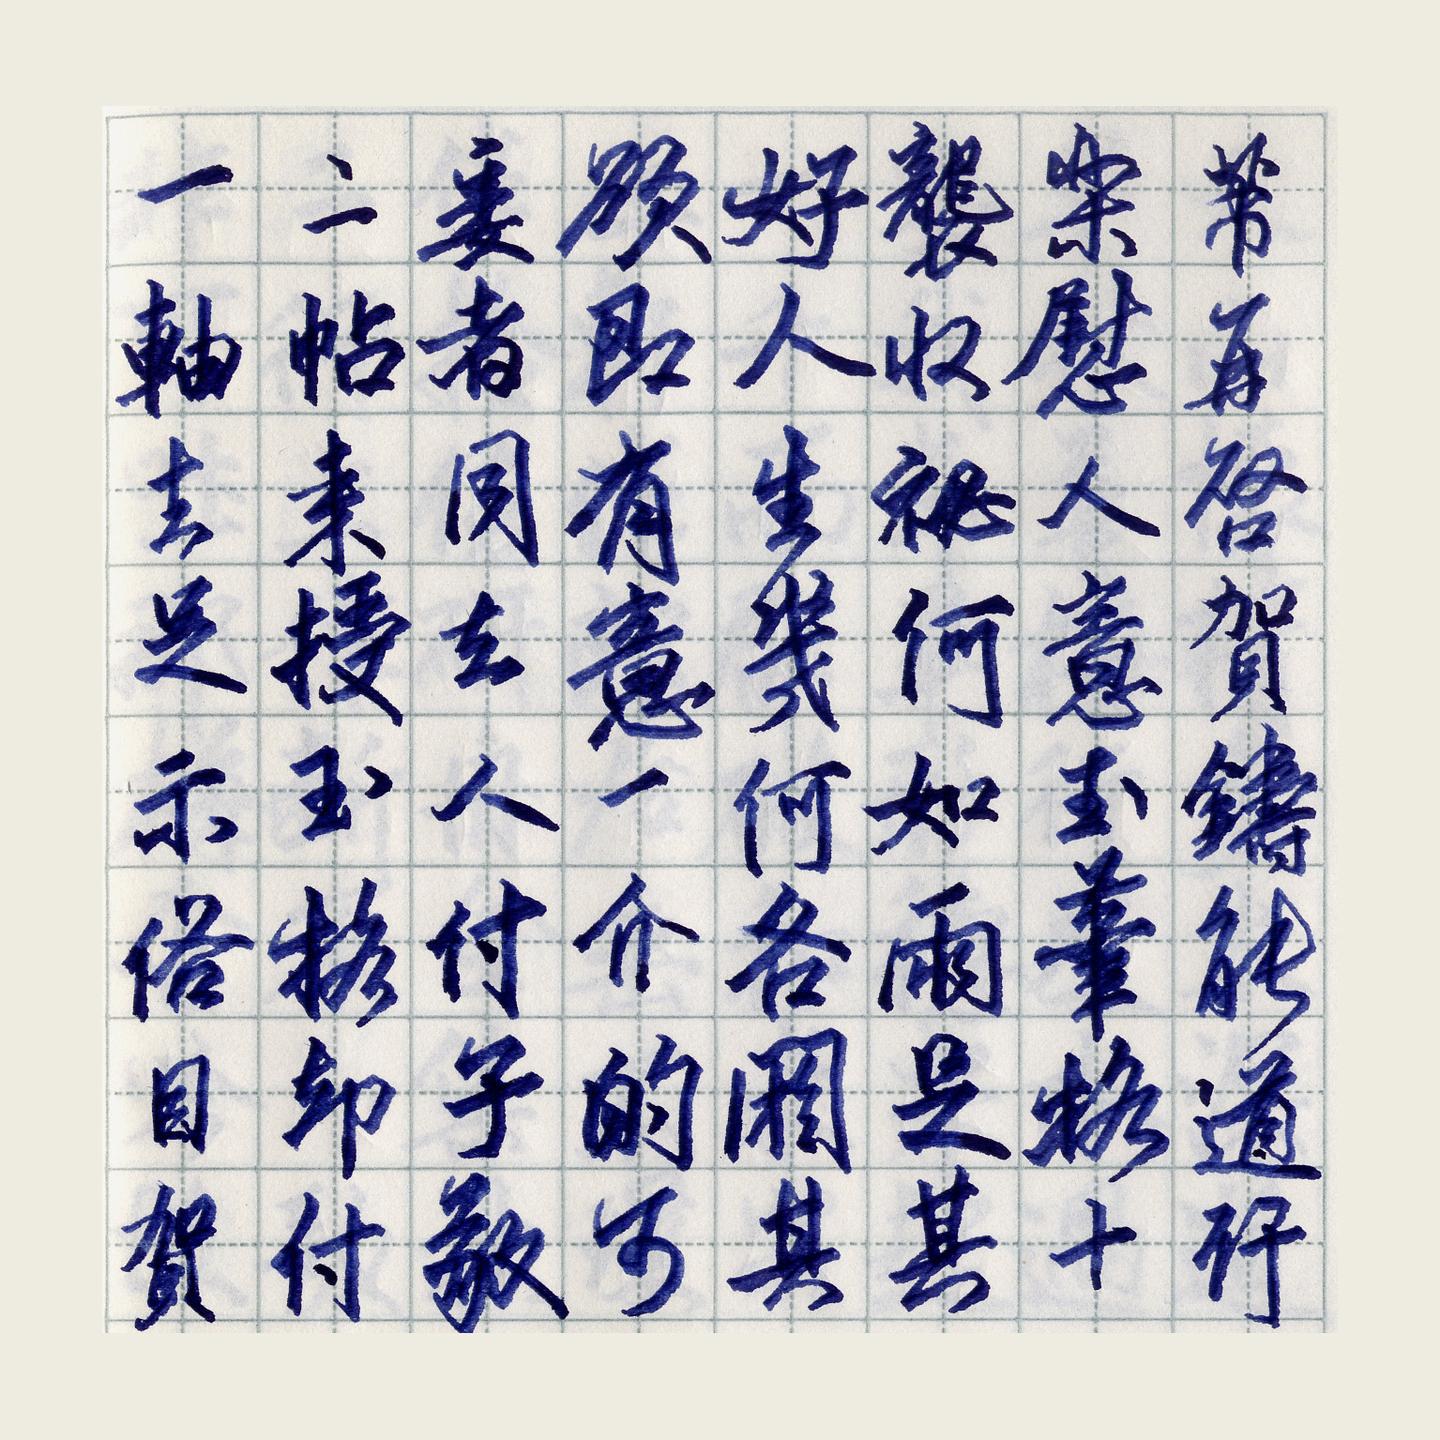 芾再啓賀鑄能道行
樂慰人意玉筆格十
襲收祕何如兩足其
好人生幾何各閼其
欲即有意一介的可
委者同去人付子敬
二帖来授玉格却付
一軸去足示俗目賀